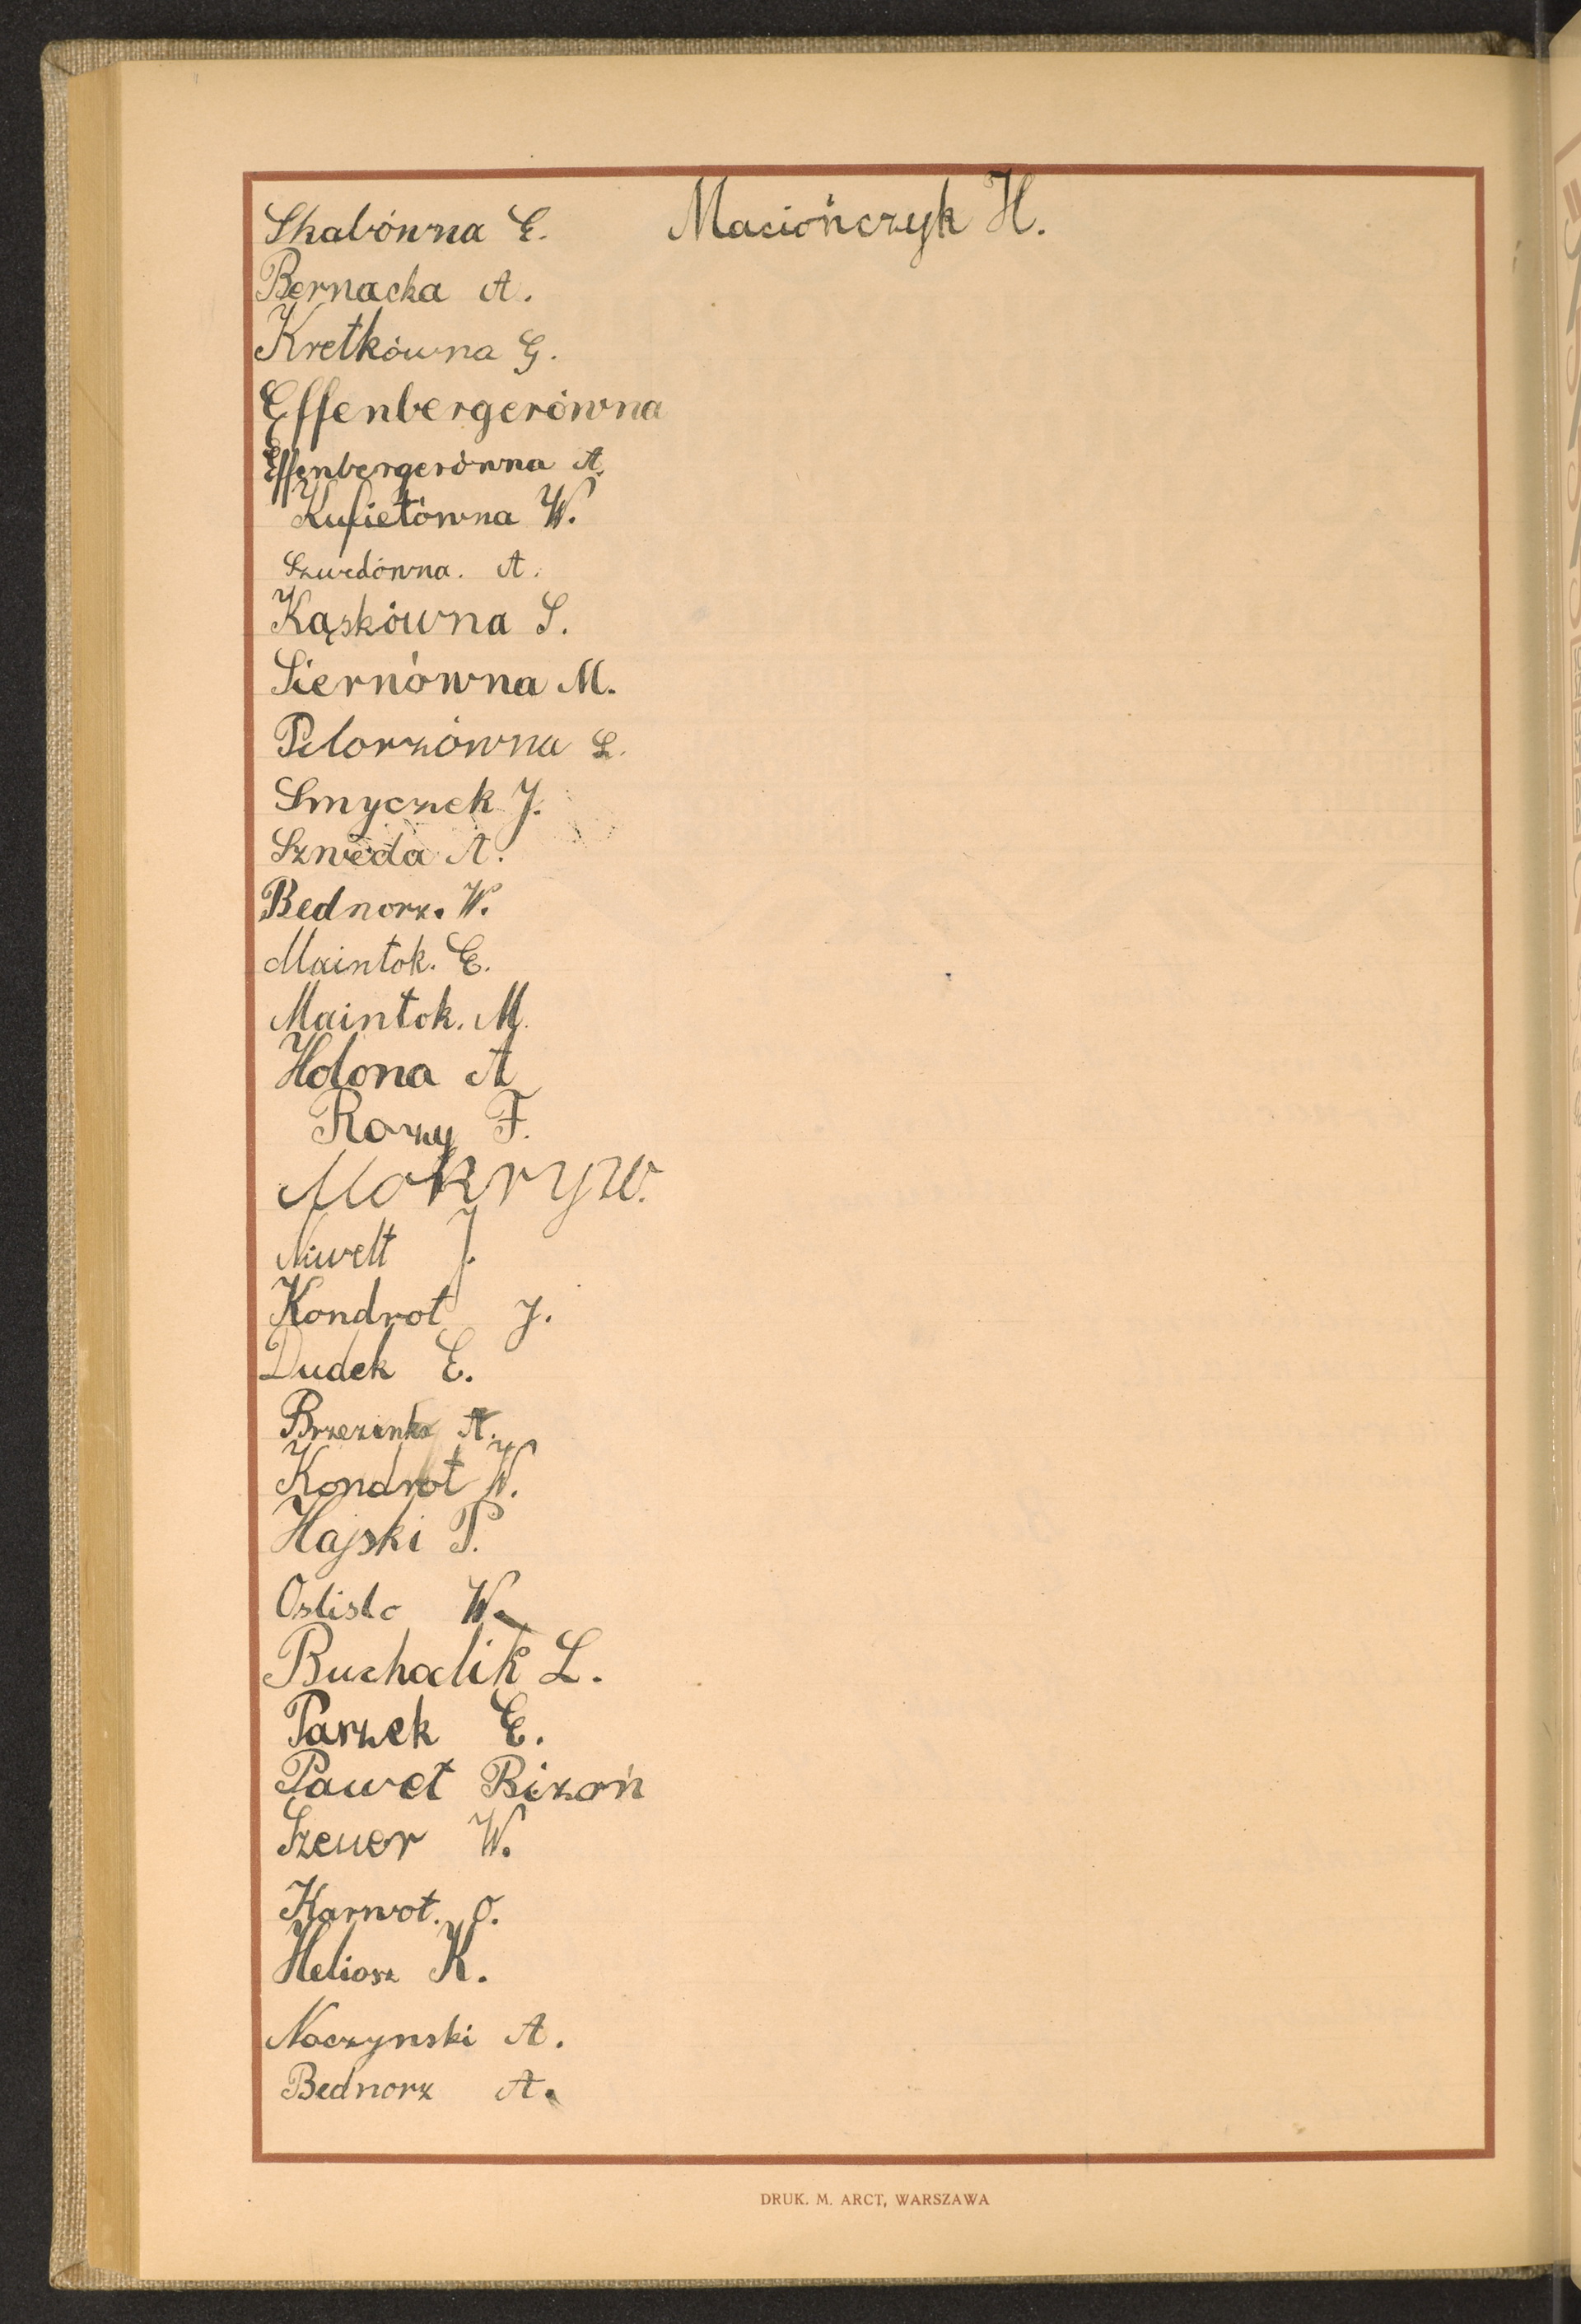 Skabówna E.
Masiończyk H.
Bernacka A.
Kretkówna G.
Effenbergerówna
Effenbergerówna A.
Kufietówna W.
Szwedówna. A.
Kąskówna S.
Siernówna M.
Pelorzówna L.
Smyczek J.
Szweda A.
Bednorz. W.
Maintok. E.
Maintok. M.
Holona A
Rozy F.
Mokry W.
Niwelt J.
Kondrot J.
Dudek E.
Brzezinka A.
Kondrot W.
Hajski P.
Oslislo W.
Buchalik L.
Parzek E.
Paweł Bizoń
Szeuer W.
Karwot. O.
Heliosz K.
Noczynski A.
Bednorz A.
DRUK. M. ARCT, WARSZAWA